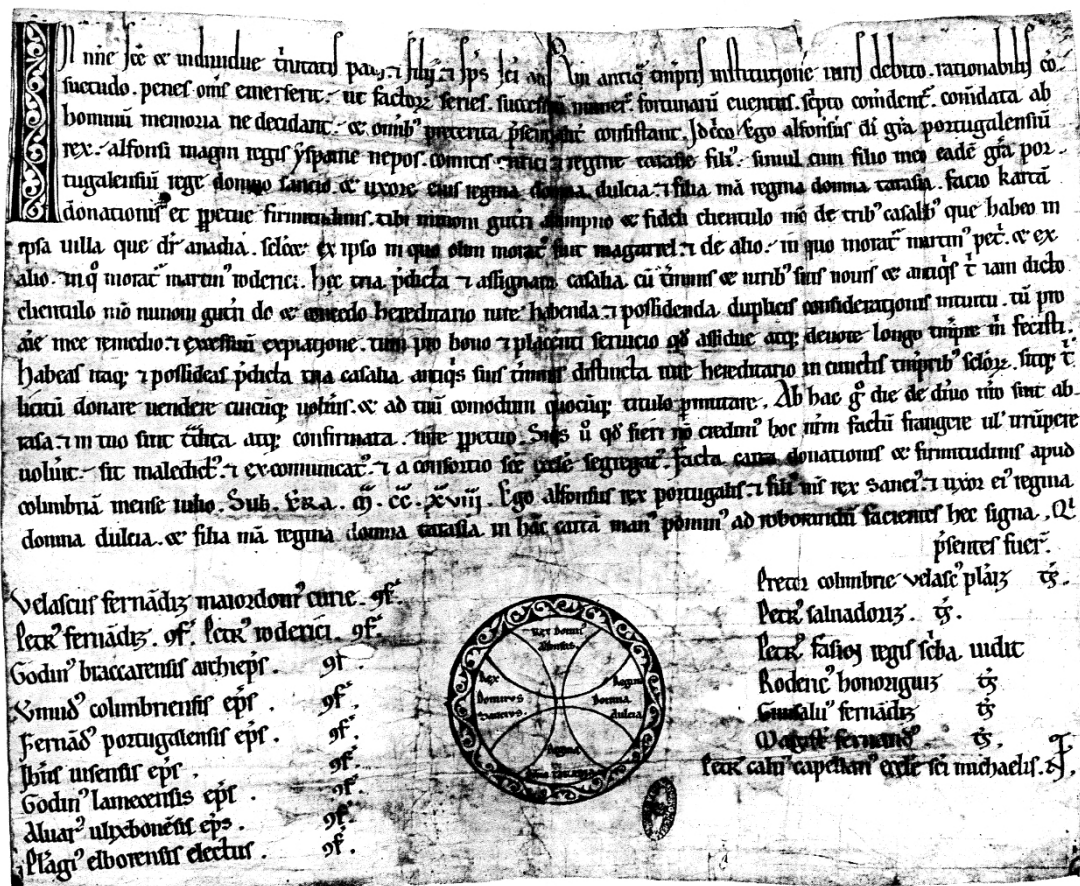 IN nōīe scē & indiuidue t̄nitatis pat's ⁊ filij ⁊ sp̄s sci am̄ Qm antiq' tm̄pris institutione iuris debito. rationabilis cō-
suetudo. penes om̄s emerserit. ut factoꝝ series. fortunarū euentus. sc̄pto com̄dent'. com̄data ab
hominū memoria ne decidant. & omib' preterita p̄sentialit' consistant. Jdcco Ego alfonsus di gr̄a portugalensiū
rex. alfonsi magni regis yspanie nepos. comitis ⁊ regine tarasie fili'. simul cum filio meo eadē gr̄a por-
tugalensiū rege domno sancio & uxore eius regina donna dulcia ⁊ filia mā regina domna tarasia. facio kartā
donationis et ꝑpetue firmitudinis. tibi nunoni gut̄ri alumpno & fideli clientulo mō de trib' casalib' que habeo in
ipsa uilla que dr̄ anadia. scl̄cꝫ. ex ipso in quo olim morat' fuit magarrel ⁊ de alio. in quo morat' martin' pet'. & ex
alio. in q° morat' martin' roderici. hęc tria p̄dicta ⁊ assignata casalia cū t̄minis & iurib' suis nouis & antiq̄s t̄ iam dicto
clientulo mō nunoni gut̄ri do & concedo hereditario iure habenda ⁊ possidenda duplicis considerationis intuitu. tū pro
aīe mee remedio ⁊ excessuū expiatione. tum pro bono ⁊ placenti seruicio qđ assidue atqꝫ deuote longo tm̄pre m̄ fecisti.
Habeas itaqꝫ ⁊ possideas p̄dicta tria casalia antiq̄s suis t̄minis distincta iure hereditario in cunctis tm̄prib' scl̄oꝝ. sitqꝫ t̄
licitū donare uendere cuicūqꝫ uolu'is. & ad tuū comodum quocūqꝫ titulo p̄mutare. Ab hac ḡ die de iure nr̄o sint ab-
rasa ⁊ in tuo sint t̄dita atqꝫ confirmata. iure ꝑpetuo. Siqs ū qđ fieri nō credim' hoc nr̄m factū frangere ul' irrūpere
uolu'it. sit maledict' ⁊ excomunicat'. ⁊ a consortio scē ecclē segregat'. Facta carta donationis & firmitudinis apud
columbriā mense iulio. Sub. ERA. M̄. CC. XVIIJ. Ego alfonsus rex portugalis ⁊ fili' m̄s rex sanci' ⁊ uxor ei' regina
domna dulcia. & filia mā regina domna tarasia in hāc cartā man' ponim' ad roborandū facientes hec signa. Qi
p̄sentes fuer̄.
Velascus fernādiz maiordom' curie. ꝯf'.
Petr' fernādiz. ꝯf'. Petr' roderici. ꝯf'.
Godin' braccarensis archiep̄s. ꝯf'.
Vmūd' columbriensis ep̄s. ꝯf'.
Fernād' portugalensis ep̄s. ꝯf'.
Jhn̄s uisensis ep̄s. ꝯf'.
Godin' lamecensis ep̄s. ꝯf'.
Aluar' ulixbonēsis ep̄s. ꝯf'.
Plāgi' elborensis electus. ꝯf'.
Rex domn'
Alfonsus.
Rex
Domnus
Sancius.
Regina
Donna
dulcia
Regina
Pretor colimbrie velasc' plāiz t̄s.
Petr' saluadoriz. t̄s.
Petr' fasion regis sc̄ba uidit
Roderic' honoriguiz t̄s
Gunsalu' fernādiz t̄s
fernand' t̄s.
Petr' calu' capellan' ecclē sci michaelis. t̄s